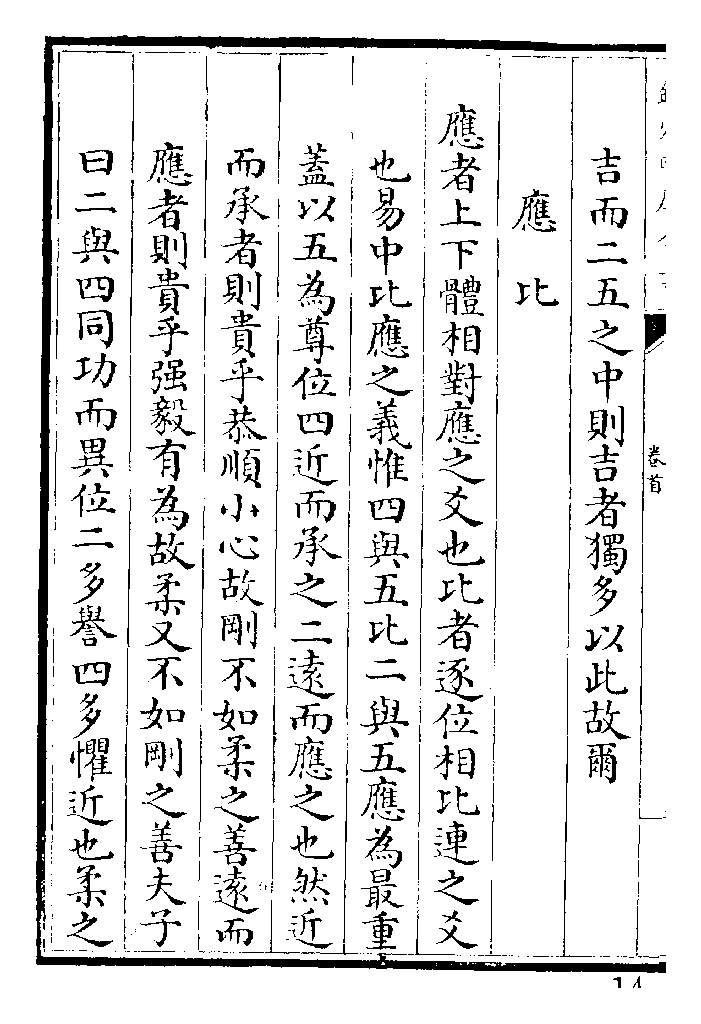 卷首
吉而二五之中則吉者獨多以此故爾
應比
應者上下體相對應之爻也比者逐位相比連之爻
也易中比應之義惟四與五比二與五應為最重
蓋以五為尊位四近而承之二遠而應之也然近
而承者則貴乎恭順小心故剛不如柔之善遠而
應者則貴乎强毅有為故柔又不如剛之善夫子
曰二與四同功而異位二多譽四多懼近也柔之